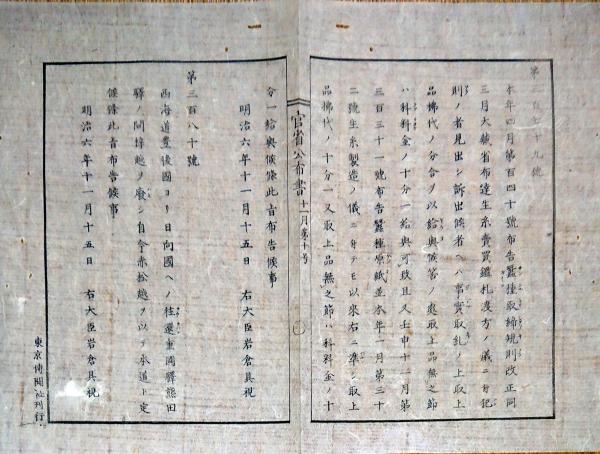 第三百七十九號
本年四月第百四十號布告蠶種取締規則改正同
三月大藏省布達生糸賣買鑑札渡方ノ儀ニ付犯
則ノ者見出シ訴出候者ヘハ事實取糺ノ上取上
品拂代ノ分合ヲ以給與候筈ノ處取上品無之節
ハ科料金ノ十分一給與可致且又壬申十一月第
三百三十一號布告蠶種原紙並本年一月第三十
二號生糸製造ノ儀ニ付テモ以來右ニ準シ取上
品拂代ノ十分一又取上品無之節ハ科料金ノ十
官省公布書 十一月第十号
分一給與候條此旨布告候事
明治六年十一月十五日 右大臣岩倉具視
第三百八十號
西海道豊後國ヨリ日向國ヘノ往還重岡驛熊田
驛ノ間梓越ヲ廢シ自今赤松越ヲ以テ本道ト定
候條此旨布告候事
明治六年十一月十五日 右大臣岩倉具視
東京傳聞社刊行